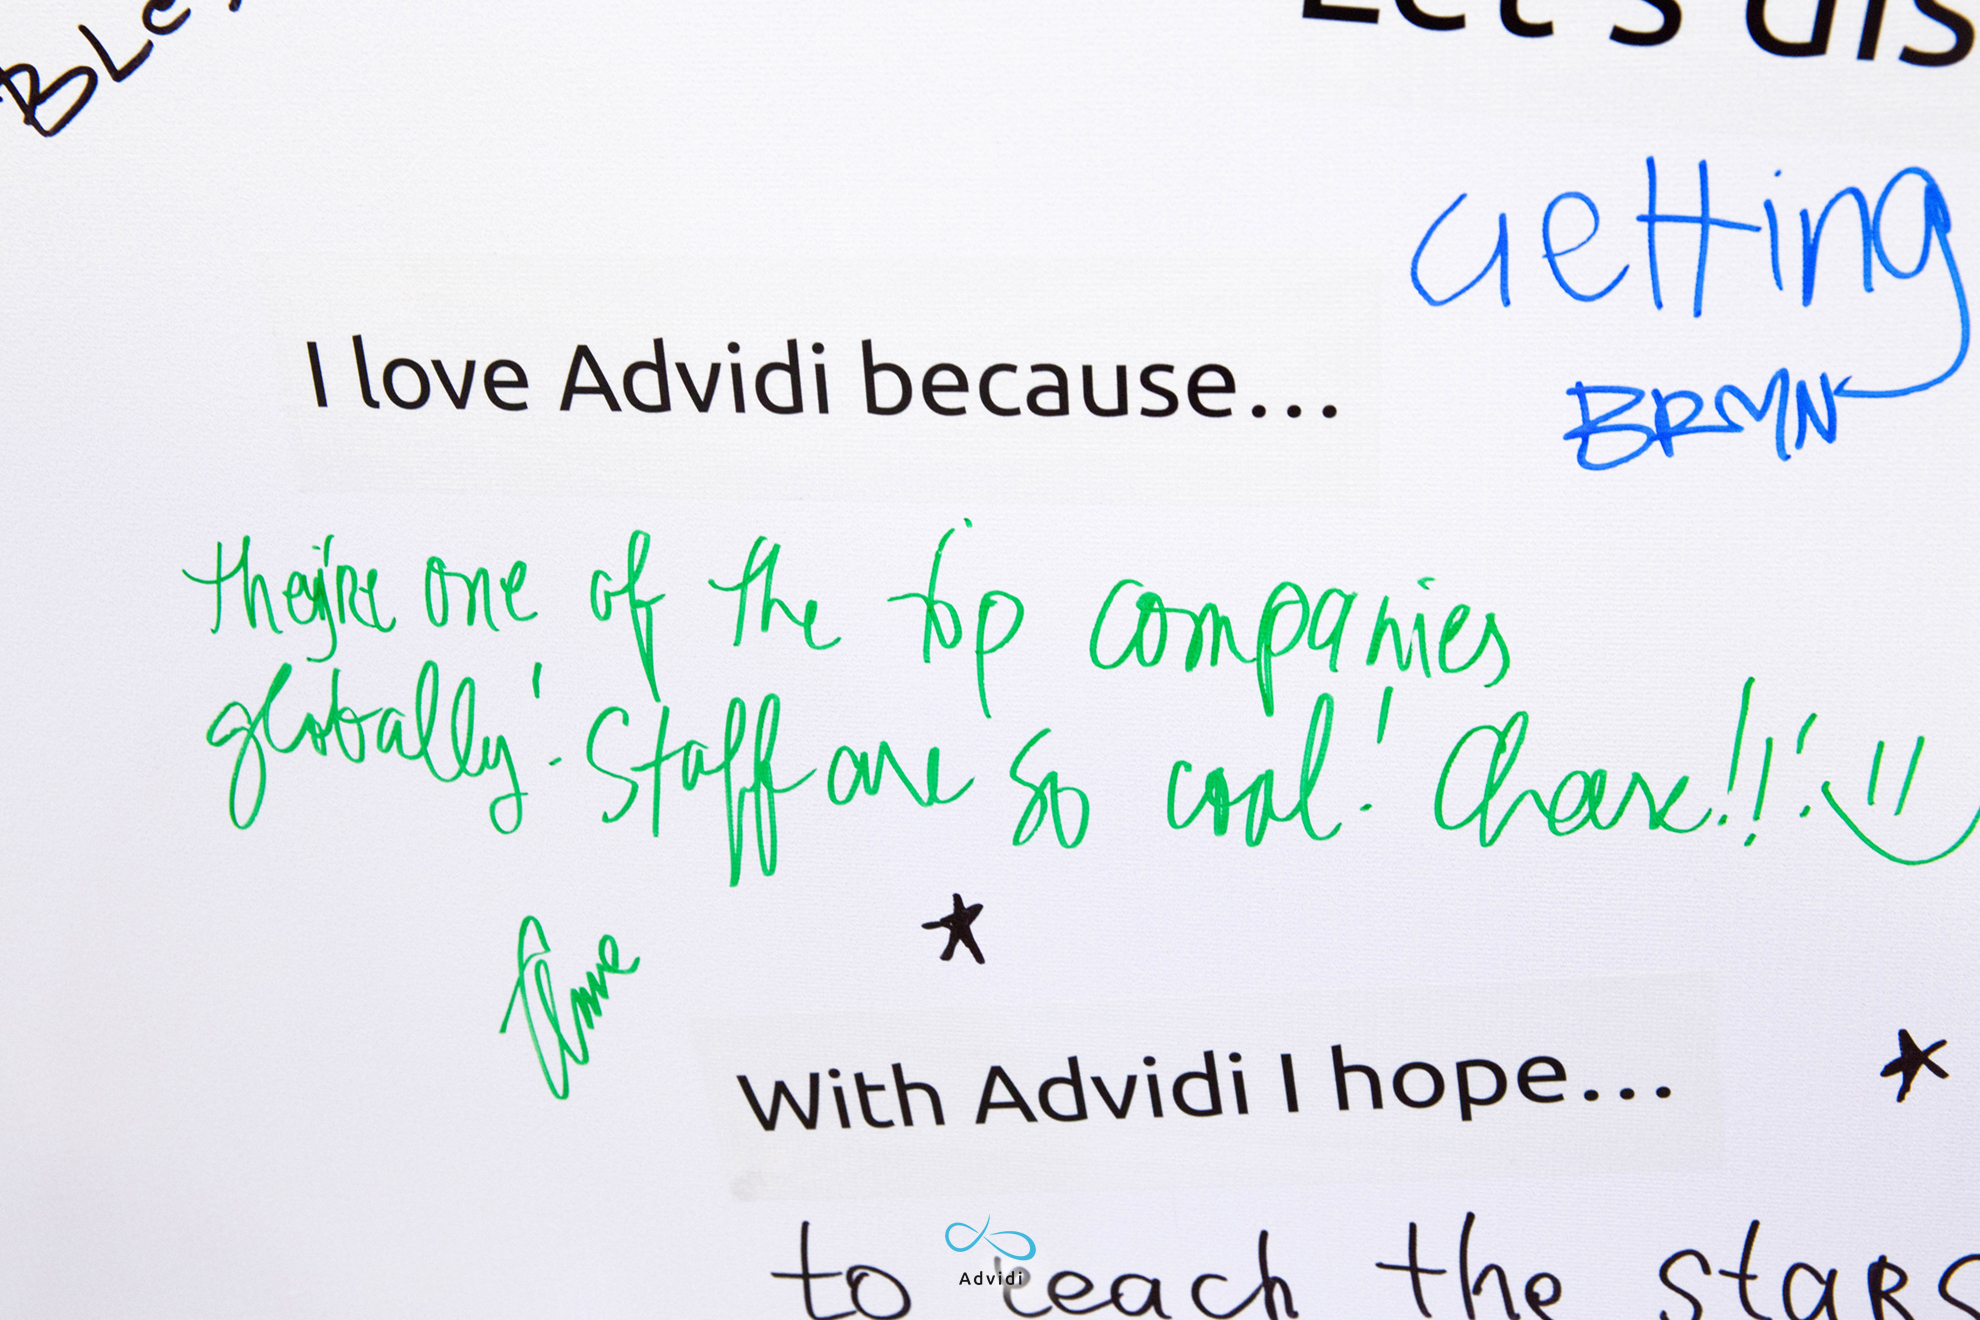 BLO
Let's dis
Getting
BRMN
I love Advidi because...
they're one of the top companies
globally! Staff are so cool! Cheers!!!
With Advidi I hope...
to reach the stars
Advidi